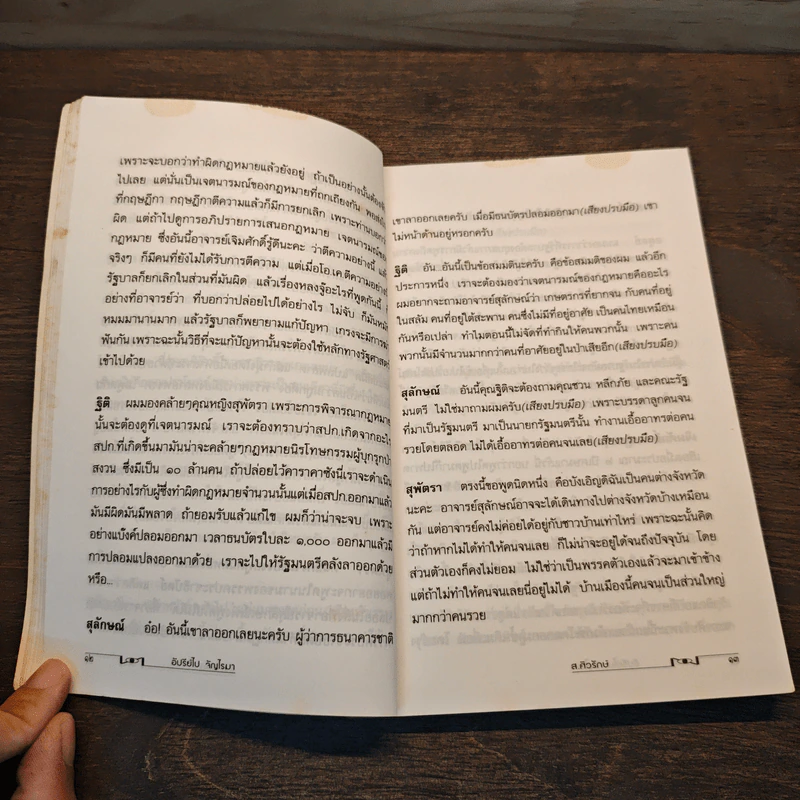 เพราะจะบอกว่าทำผิดกฎหมายแล้วยังอยู่ ถ้าเป็นอย่างนั้นต้อง
ไปเลย แต่นั่นเป็นเจตนารมณ์ของกฎหมายที่ถกเถียงกัน พอส่ง
ที่กฤษฎีกา กฤษฎีกาตีความแล้วก็มีการยกเลิก เพราะท่านบอกว่า
ผิด แต่ถ้าไปดูการอภิปรายการเสนอกฎหมาย เจตนารมณ์ของ
กฎหมาย ซึ่งอันนี้อาจารย์เจิมศักดิ์รู้ดีนะคะ ว่าตีความอย่างนี้
จริงๆ ก็มีคนที่ยังไม่ได้รับการตีความ แต่เมื่อโอ.เค.ตีความอย่างนี้
รัฐบาลก็ยกเลิกในส่วนที่มันผิด แล้วเรื่องหลงจู๊อะไรที่พูดกันนี้
อย่างที่อาจารย์ว่า ที่บอกว่าปล่อยไปได้อย่างไร ไม่จับ ก็มัน
หมมมานานมาก แล้วรัฐบาลก็พยายามแก้ปัญหา เกรงจะมีการ
พันกัน เพราะฉะนั้นวิธีที่จะแก้ปัญหานั้นจะต้องใช้หลักทางรัฐศาสตร์
เข้าไปด้วย
ฐิติ ผมมองคล้ายๆคุณหญิงสุพัตรา เพราะการพิจารณากฎหมาย
นั้นจะต้องดูที่เจตนารมณ์ เราจะต้องทราบว่าสปก.เกิดจากอะไร
สปก.ที่เกิดขึ้นมามันน่าจะคล้ายๆกฎหมายนิรโทษกรรมผู้บุกรุกป่า
สงวน ซึ่งมีเป็น ๑๐ ล้านคน ถ้าปล่อยไว้คาราคาซังนี่เราจะดำเนิน
การอย่างไรกับผู้ซึ่งทำผิดกฎหมายจำนวนนั้นแต่เมื่อสปก.ออกมาแล้ว
มันมีผิดมันมีพลาด ถ้ายอมรับแล้วแก้ไข ผมก็ว่าน่าจะจบ เพราะ
อย่างแบ๊งค์ปลอมออกมา เวลาธนบัตรใบละ ๑,๐๐๐ ออกมาแล้วมี
การปลอมแปลงออกมาด้วย เราจะไปให้รัฐมนตรีคลังลาออกด้วย
หรือ...
สุลักษณ์ อ๋อ! อันนี้เขาลาออกเลยนะครับ ผู้ว่าการธนาคารชาติ
๑๒ อัปรีย์ไป จัญไรมา
เขาลาออกเลยครับ เมื่อมีธนบัตรปลอมออกมา(เสียงปรบมือ) เขา
ไม่หน้าด้านอยู่หรอกครับ
ฐิติ อัน อันนี้เป็นข้อสมมตินะครับ คือข้อสมมติของผม แล้วอีก
ประการหนึ่ง เราจะต้องมองว่าเจตนารมณ์ของกฎหมายคืออะไร
ผมอยากจะถามอาจารย์สุลักษณ์ว่า เกษตรกรที่ยากจน กับคนที่อยู่
ในสลัม คนที่อยู่ใต้สะพาน คนซึ่งไม่มีที่อยู่อาศัย เป็นคนไทยเหมือน
กันหรือเปล่า ทำไมตอนนี้ไม่จัดที่ทำกินให้คนพวกนั้น เพราะคน
พวกนั้นมีจำนวนมากกว่าคนที่อาศัยอยู่ในป่าเสียอีก(เสียงปรบมือ)
สุลักษณ์ อันนี้คุณฐิติจะต้องถามคุณชวน หลีกภัย และคณะรัฐ
มนตรี ไม่ใช่มาถามผมครับ(เสียงปรบมือ) เพราะบรรดาลูกคนจน
ที่มาเป็นรัฐมนตรี มาเป็นนายกรัฐมนตรีนั้น ทำงานเอื้ออาทรต่อคน
รวยโดยตลอด ไม่ได้เอื้ออาทรต่อคนจนเลย(เสียงปรบมือ)
สุพัตรา ตรงนี้ขอพูดนิดหนึ่ง คือบังเอิญดิฉันเป็นคนต่างจังหวัด
นะคะ อาจารย์สุลักษณ์อาจจะได้เดินทางไปต่างจังหวัดบ้างเหมือน
กัน แต่อาจารย์คงไม่ค่อยได้อยู่กับชาวบ้านเท่าไหร่ เพราะฉะนั้นคิด
ว่าถ้าหากไม่ได้ทำให้คนจนเลย ก็ไม่น่าจะอยู่ได้จนถึงปัจจุบัน โดย
ส่วนตัวเองก็คงไม่ยอม ไม่ใช่ว่าเป็นพรรคตัวเองแล้วจะมาเข้าข้าง
แต่ถ้าไม่ทำให้คนจนเลยนี่อยู่ไม่ได้ บ้านเมืองนี้คนจนเป็นส่วนใหญ่
มากกว่าคนรวย
ส.ศิวรักษ์ ๑๓